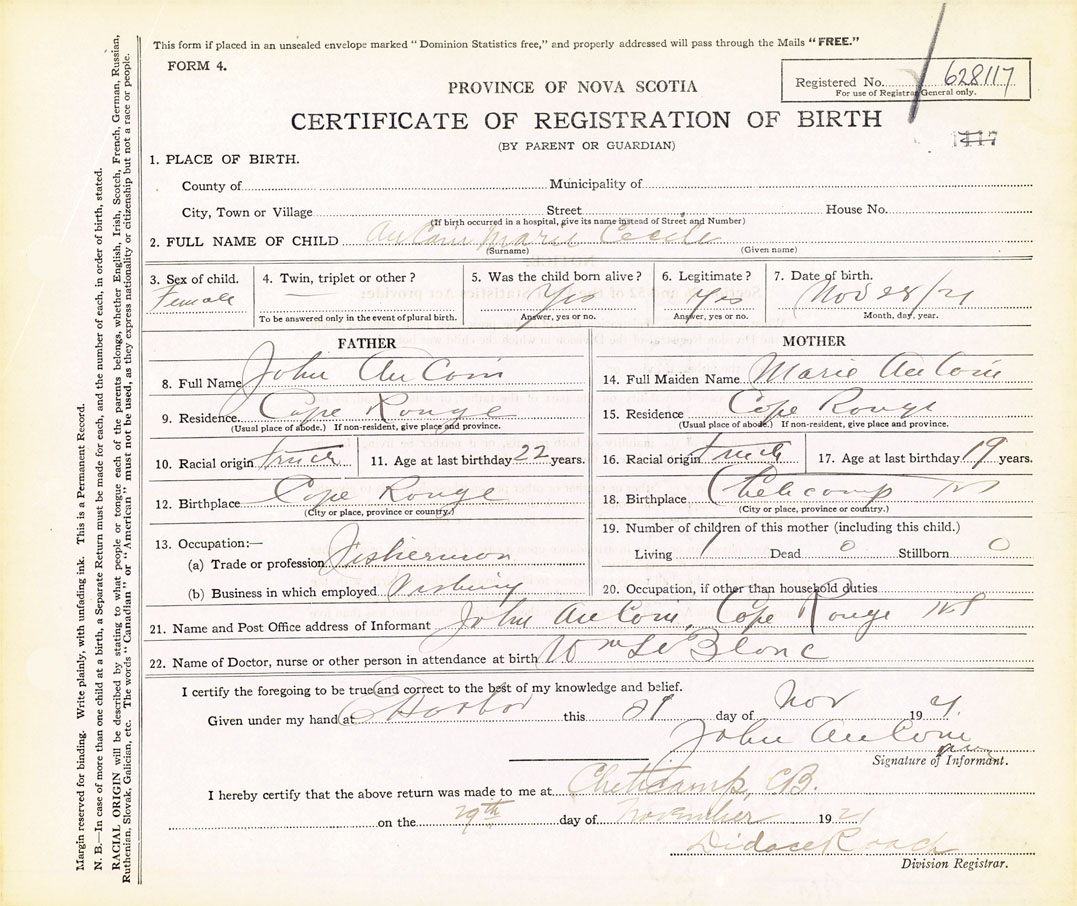 This form if placed in an unsealed envelope marked "Dominion Statistics free," and properly addressed will pass through the Mails "FREE."
FORM 4.
Registered No. 628117
For use of Registrar General only.
PROVINCE OF NOVA SCOTIA
CERTIFICATE OF REGISTRATION OF BIRTH
(BY PARENT OR GUARDIAN)
1. PLACE OF BIRTH.
County of Municipality of
City, Town or Village Street House No.
(If birth occurred in a hospital, give its name instead of Street and Number)
2. FULL NAME OF CHILD AuCoin Marie Cecile
(Surname) (Given name)
3. Sex of child. 4. Twin, triplet or other? 5. Was the child born alive? 6. Legitimate? 7. Date of birth.
Female — Yes Yes Nov 28/21
To be answered only in the event of plural birth. Answer, yes or no. Answer, yes or no. Month, day, year.
FATHER
8. Full Name John AuCoin
9. Residence Cape Rouge
(Usual place of abode.) If non-resident, give place and province.
10. Racial origin 11. Age at last birthday 22 years.
12. Birthplace Cape Rouge
(City or place, province or country.)
13. Occupation:—
(a) Trade or profession Fisherman
(b) Business in which employed
MOTHER
14. Full Maiden Name Marie AuCoin
15. Residence Cape Rouge
(Usual place of abode.) If non-resident, give place and province.
16. Racial origin 17. Age at last birthday 19 years.
18. Birthplace Cheticamp NS
(City or place, province or country.)
19. Number of children of this mother (including this child.)
Living 1 Dead 0 Stillborn 0
20. Occupation, if other than household duties
21. Name and Post Office address of Informant John AuCoin, Cape Rouge NS
22. Name of Doctor, nurse or other person in attendance at birth Wm LeBlanc
I certify the foregoing to be true and correct to the best of my knowledge and belief.
Given under my hand at E Harbor this 29 day of Nov 1921
John AuCoin
Signature of Informant.
I hereby certify that the above return was made to me at Cheticamp, C.B.
on the 29th day of November 1921
Didace Roach
Division Registrar.
Margin reserved for binding. Write plainly, with unfading ink. This is a Permanent Record.
N. B.—In case of more than one child at a birth, a Separate Return must be made for each, and the number of each, in order of birth, stated.
RACIAL ORIGIN will be described by stating to what people or tongue each of the parents belongs, whether English, Irish, Scotch, French, German, Russian,
Ruthenian, Slovak, Galician, etc. The words "Canadian" or "American" must not be used, as they express nationality or citizenship but not a race or people.